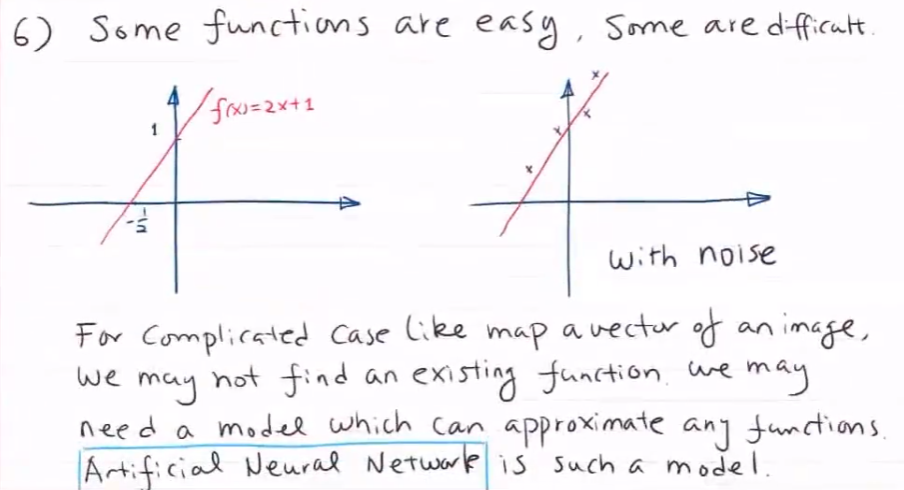 6) Some functions are easy, Some are difficult.
f(x)=2x+1
1
-1/2
with noise
For complicated case like map a vector of an image,
we may not find an existing function. we may
need a model which can approximate any functions.
Artificial Neural Network is such a model.